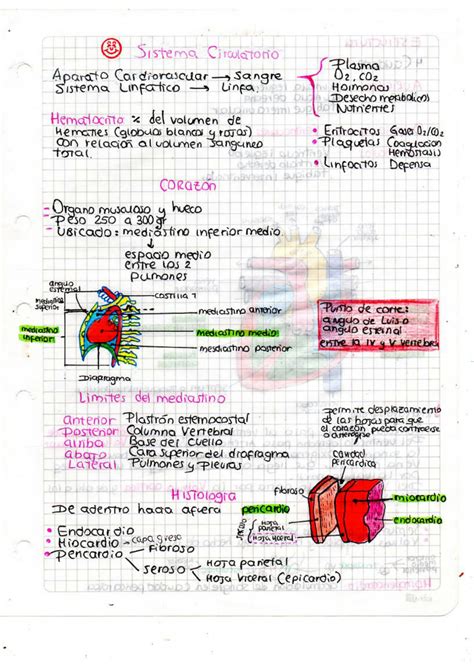 Sistema Circulatorio
Aparato Cardiovascular → Sangre
Sistema Linfatico → Linfa
Plasma
O2, CO2
Hormonas
Desecho metabólicos
Nutrientes
Hematocito % del volumen de
hematies (globulos blancos y rojos)
con relacion al volumen sanguneo
total.
• Eritrocitos Gases O2/CO2
• Plaquetas Coagulacion
Hemostasis
• Linfocitos Defensa
CORAZON
- Organo musculoso y hueco
- Peso 250 a 300gr
- Ubicado: mediastino inferior medio
espacio medio
entre los 2
pulmones
angulo
esternal
costilla 1
mediastino
superior
mediastino anterior
mediastino
inferior
mediastino medio
mediastino posterior
Diafragma
Punto de corte:
angulo de Luiso
angulo esternal
entre la IV y V vertebra
Limites del mediastino
anterior Plastrón esternocostal
Posterior Columna Vertebral
arriba Base del cuello
abajo Cara superior del diafragma
Lateral Pulmones y Pleuras
Permite desplazamiento
de las hojas para que
el corazón pueda contraerse
cavidad
pericardica
Histologia
De adentro hacia afuera
• Endocardio
• Miocardio - capa grueso
• Pericardio
Fibroso
seroso
Hoja parietal
Hoja viceral (epicardio)
fibroso
pericardio
seroso
Hoja
parietal
Hoja viceral
miocardio
endocardio